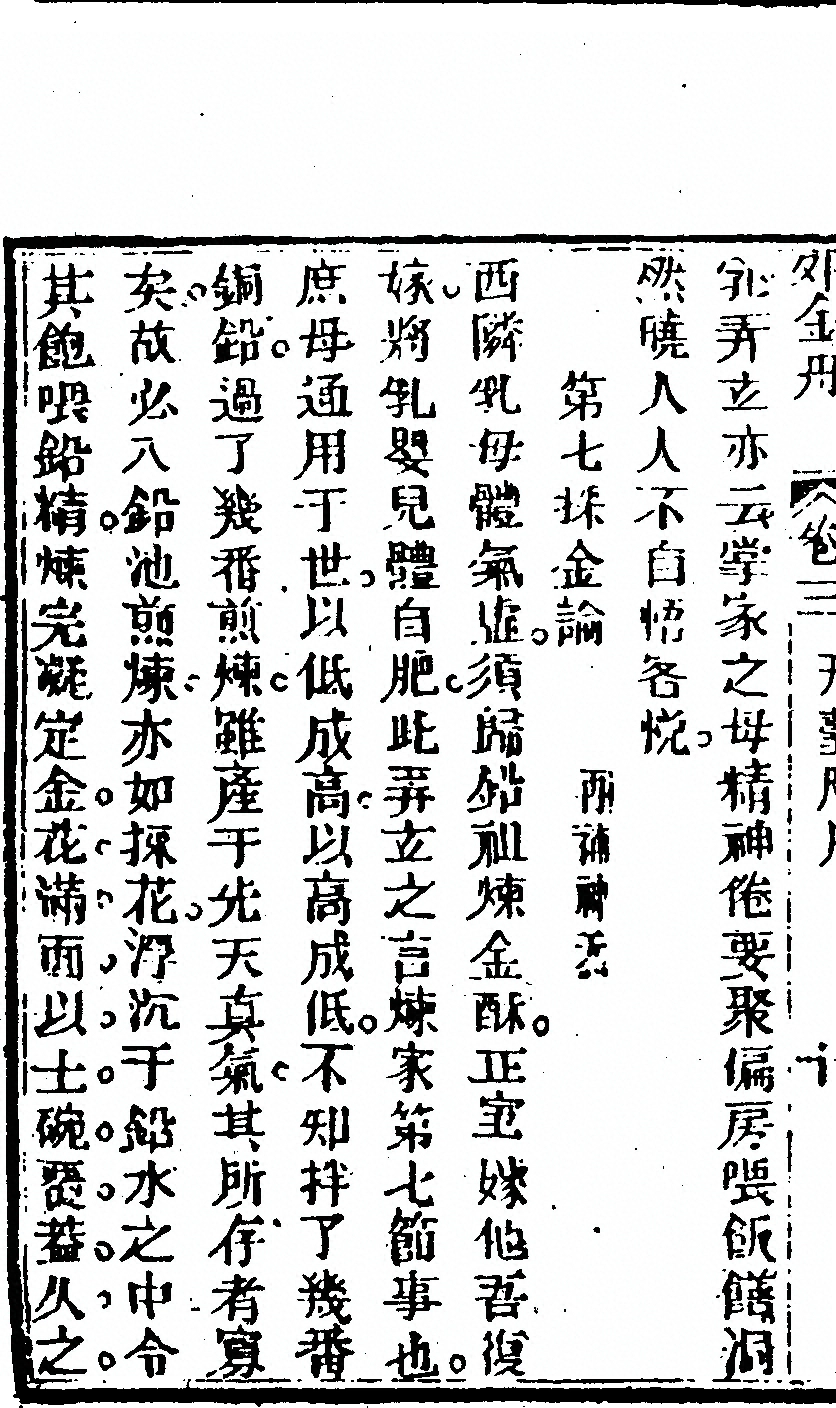 外金丹 卷三
乳弄立亦云掌家之母精神倦要聚偏房喂飯饍洞
然曉人人不自悟各悅
第七採金論 兩補神
西隣乳母體氣虛須歸鉛祖煉金酥正室嫁他吾復
嫁將乳嬰兒體自肥此弄立之言煉家第七節事也
庶母通用于世以低成高以高成低不知拌了幾番
銅鉛過了幾番煎煉雖產于先天真氣其所存者寡
矣故必入鉛池煎煉亦如揀花浮沉于鉛水之中令
其飽喂鉛精煉完凝定金花滿面以土碗覆葢久之